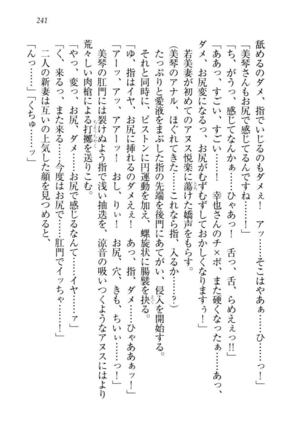 241
舐めるのダメ、指でいじるのもダメぇ！　アッ……そこはやあぁっ！」
「美琴さんもお尻で感じてるんですね……！」
「ち、がうっ、感じてなんかぁ……ひゃあっ！　舌っ、舌、らめえぇっ!!」
「あぁっ……すごい、すごいぃ……！　幸也さんのチ×ポ、また硬くなったぁっ……あっ、
ダメ、お尻変になるっ、お尻がむずむずしておかしくなりますぅ！」
若美妻が二人そろってのアヌス悦楽に蕩けた嬌声をもらす。
（美琴のアナル、ほぐれてきた……これなら指、入るか……？）
たっぷりと愛液をまぶした指の先端を後門にあてがい、侵入を開始する。
それと同時に、ピストンに円運動を加え、螺旋状に腸襞を抉る。
「ひっ!?　ゆ、指はイヤ、お尻に挿れるのダメえぇ！　あっ、指、ダメ……ひゃあああぁ！」
「アーッ、アッ、アアーッ！　おし、りぃ！　お尻、穴、きも、ちいぃ……っ！」
美琴の肛門には裂けぬよう指で浅い抽送を、涼音の吸いつくようなアヌスにはより
荒々しい肉槍による打擲を送りこむ。
「やっ、変っ、お尻、ダメ……お尻で感じるなんて……イヤ……ァ」
「く、来るっ、また来る……今度はお尻で……肛門でイッちゃ……ぁ！」
二人の新妻は互いの上気した顔を見つめると、
「んっ……」「くちゅ……っ」